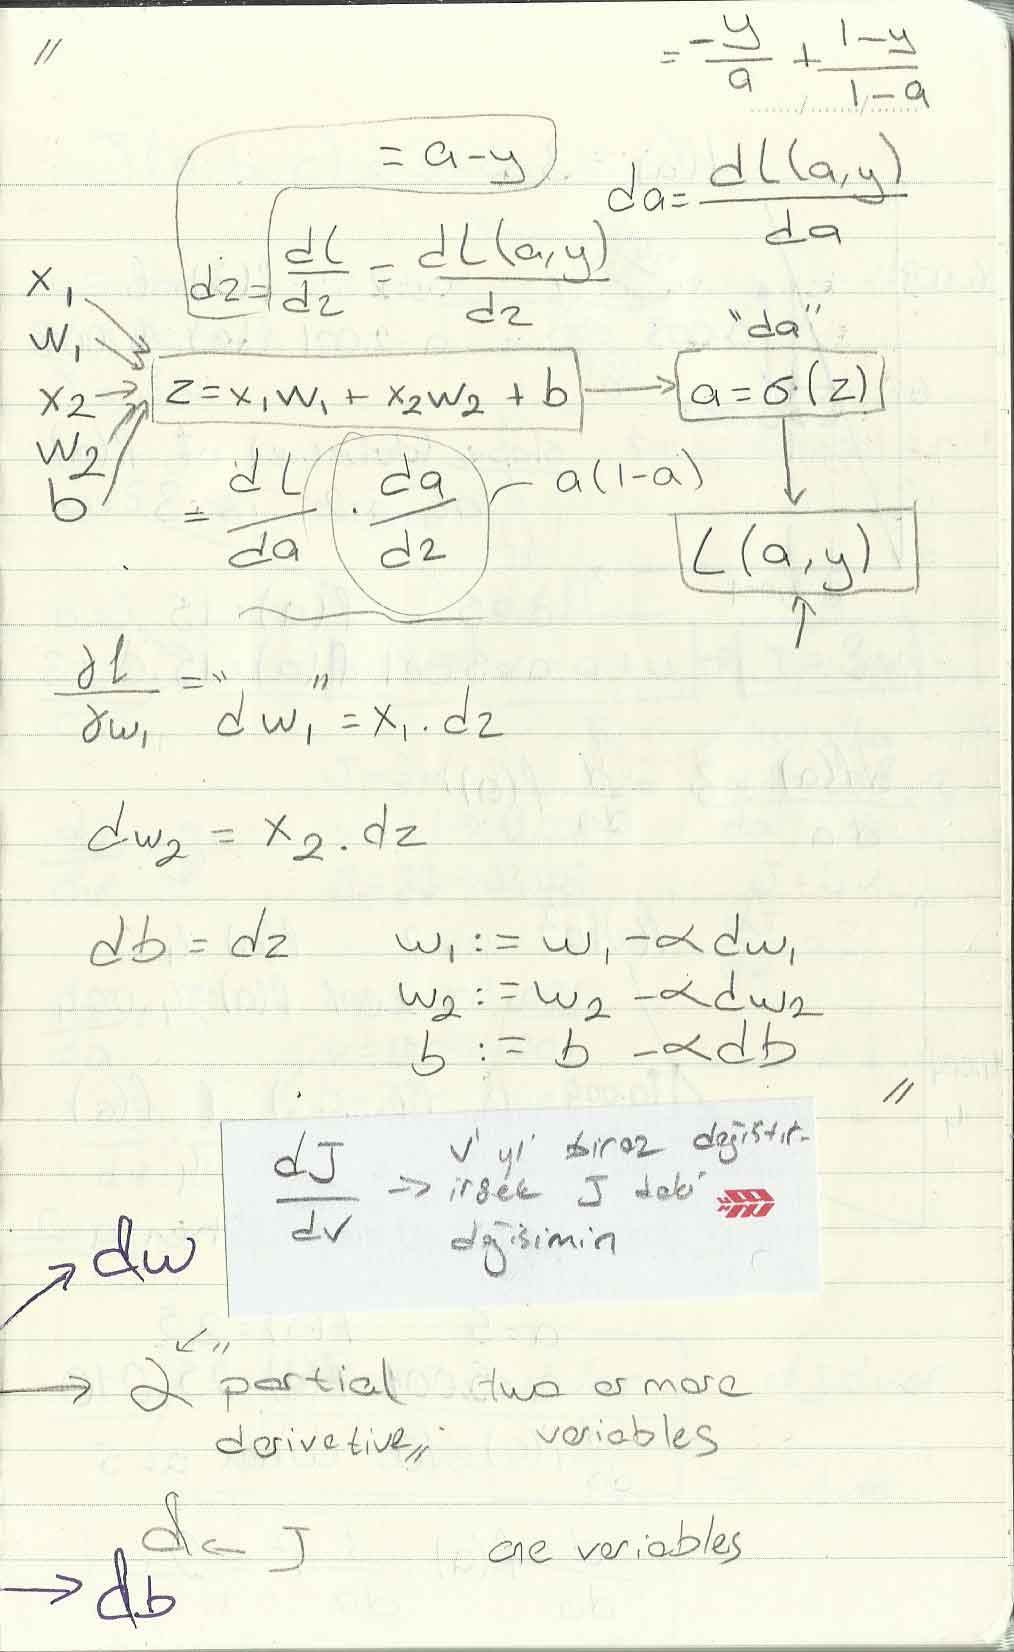 "
= -y/a + 1-y/1-a
= a-y
da = dL(a,y)/da
dz = dL/dz = dL(a,y)/dz
x1
w1
x2
w2
b
"da"
z = x1w1 + x2w2 + b
a = σ(z)
= dL/da . da/dz
a(1-a)
L(a,y)
∂L/∂w1 = "dw1" = x1 . dz
dw2 = x2 . dz
db = dz
w1 := w1 - αdw1
w2 := w2 - αdw2
b := b - αdb
"
dJ/dv → v'yi biraz değiştir-
irsek J deki
değişimin
dw
∂ "partial derivetive" two or more variables
d ← J one variables
db